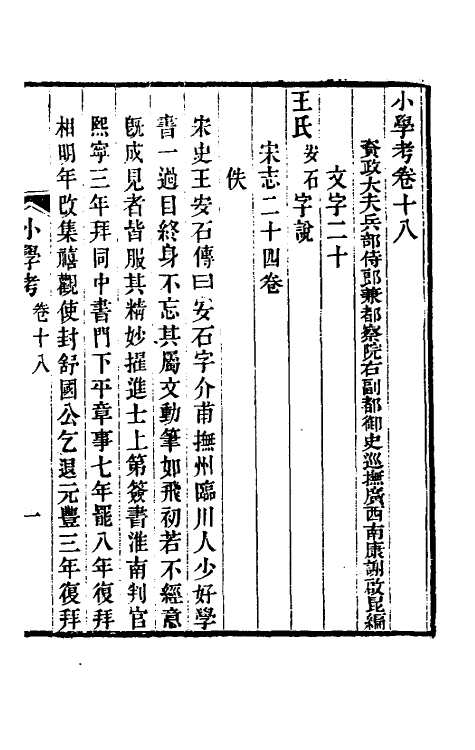 小學考卷十八
資政大夫兵部侍郎兼都察院右副都御史巡撫廣西南康謝啟昆編
文字二十
王氏安石字說
宋志二十四卷
佚
宋史王安石傳曰安石字介甫撫州臨川人少好學
書一過目終身不忘其屬文動筆如飛初若不經意
旣成見者皆服其精妙擢進士上第簽書淮南判官
熙寧三年拜同中書門下平章事七年罷八年復拜
相明年改集禧觀使封舒國公乞退元豐三年復拜
小學考 卷十八 一